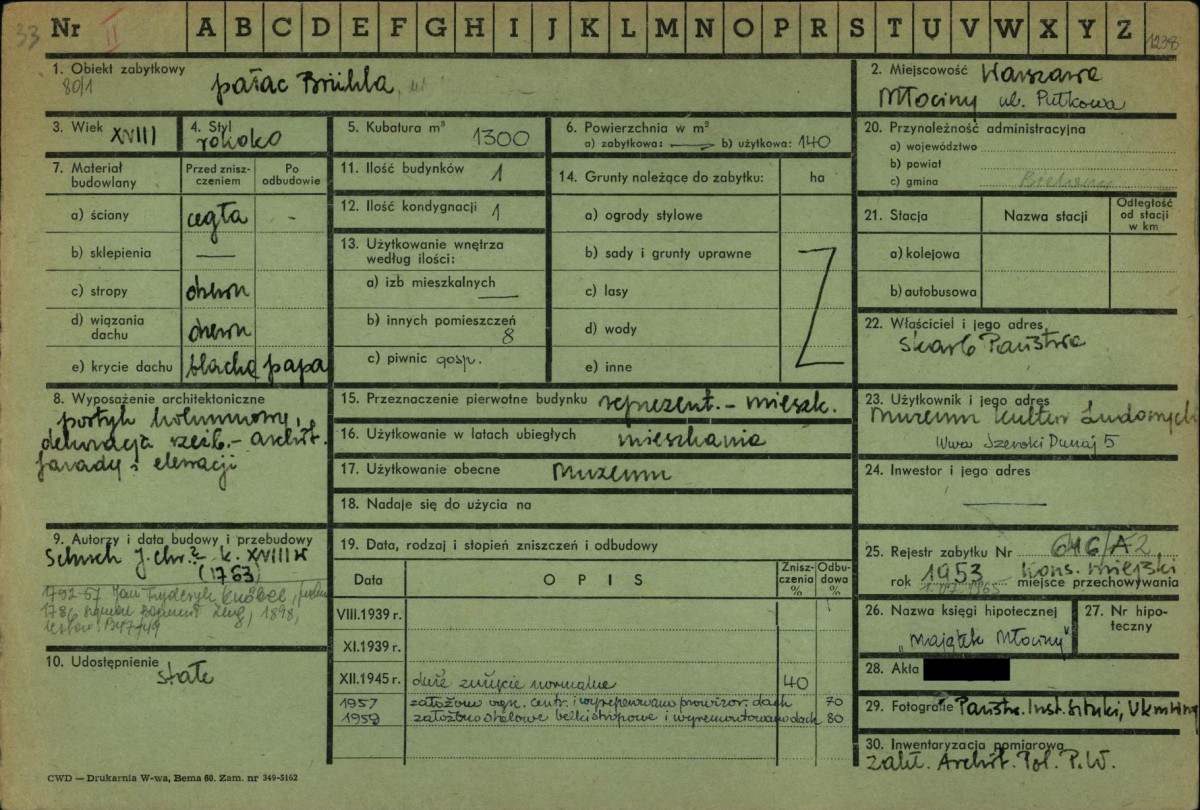 33 Nr II A B C D E F G H I J K L M N O P R S T U V W X Y Z 1238
1. Obiekt zabytkowy
80/1
pałac Brühla
2. Miejscowość Warszawa
Młociny ul. Pułkowa
3. Wiek XVIII
4. Styl rokoko
5. Kubatura m³ 1300
6. Powierzchnia w m²
a) zabytkowa: — b) użytkowa: 140
20. Przynależność administracyjna
a) województwo
b) powiat
c) gmina
7. Materiał budowlany
Przed zniszczeniem
Po odbudowie
a) ściany cegła -
b) sklepienia —
c) stropy drewn
d) wiązania dachu drewn
e) krycie dachu blacha papa
11. Ilość budynków 1
12. Ilość kondygnacji 1
13. Użytkowanie wnętrza
według ilości:
a) izb mieszkalnych —
b) innych pomieszczeń
8
c) piwnic gosp.
14. Grunty należące do zabytku: ha
a) ogrody stylowe
b) sady i grunty uprawne
c) lasy
d) wody
e) inne
21. Stacja
Nazwa stacji
Odległość
od stacji
w km
a) kolejowa
b) autobusowa
22. Właściciel i jego adres
Skarb Państwa
8. Wyposażenie architektoniczne
portyk kolumnowy,
dekoracja rzeźb.-archit.
fasady i elewacji
15. Przeznaczenie pierwotne budynku reprezent.- mieszk.
16. Użytkowanie w latach ubiegłych mieszkania
17. Użytkowanie obecne Muzeum
18. Nadaje się do użycia na
23. Użytkownik i jego adres
Muzeum Kultur Ludowych
Wwa Szeroki Dunaj 5
24. Inwestor i jego adres
—
9. Autorzy i data budowy i przebudowy
Schuch J. Chr.? k. XVIII w
(1763)
1786 Szymon Bogumił Zug, 1898,
10. Udostępnienie
stałe
19. Data, rodzaj i stopień zniszczeń i odbudowy
Data
OPIS
Zniszczenia %
Odbudowa %
VIII.1939 r.
XI.1939 r.
XII.1945 r. duże zużycie normalne 40
1957 założono ogrz. centr. i wyreperowano prowizor. dach 70
1959 założono stalowe belki stropowe i wyremontowano dach 80
25. Rejestr zabytku Nr 646/A2
rok 1953 Kons. miejski
1.VII.1965 miejsce przechowywania
26. Nazwa księgi hipotecznej
"Majątek Młociny"
27. Nr hipoteczny
28. Akta
29. Fotografie Państw. Inst. Sztuki,
30. Inwentaryzacja pomiarowa
Zakł. Archit. Pol. P.W.
CWD — Drukarnia W-wa, Bema 60. Zam. nr 349-5162